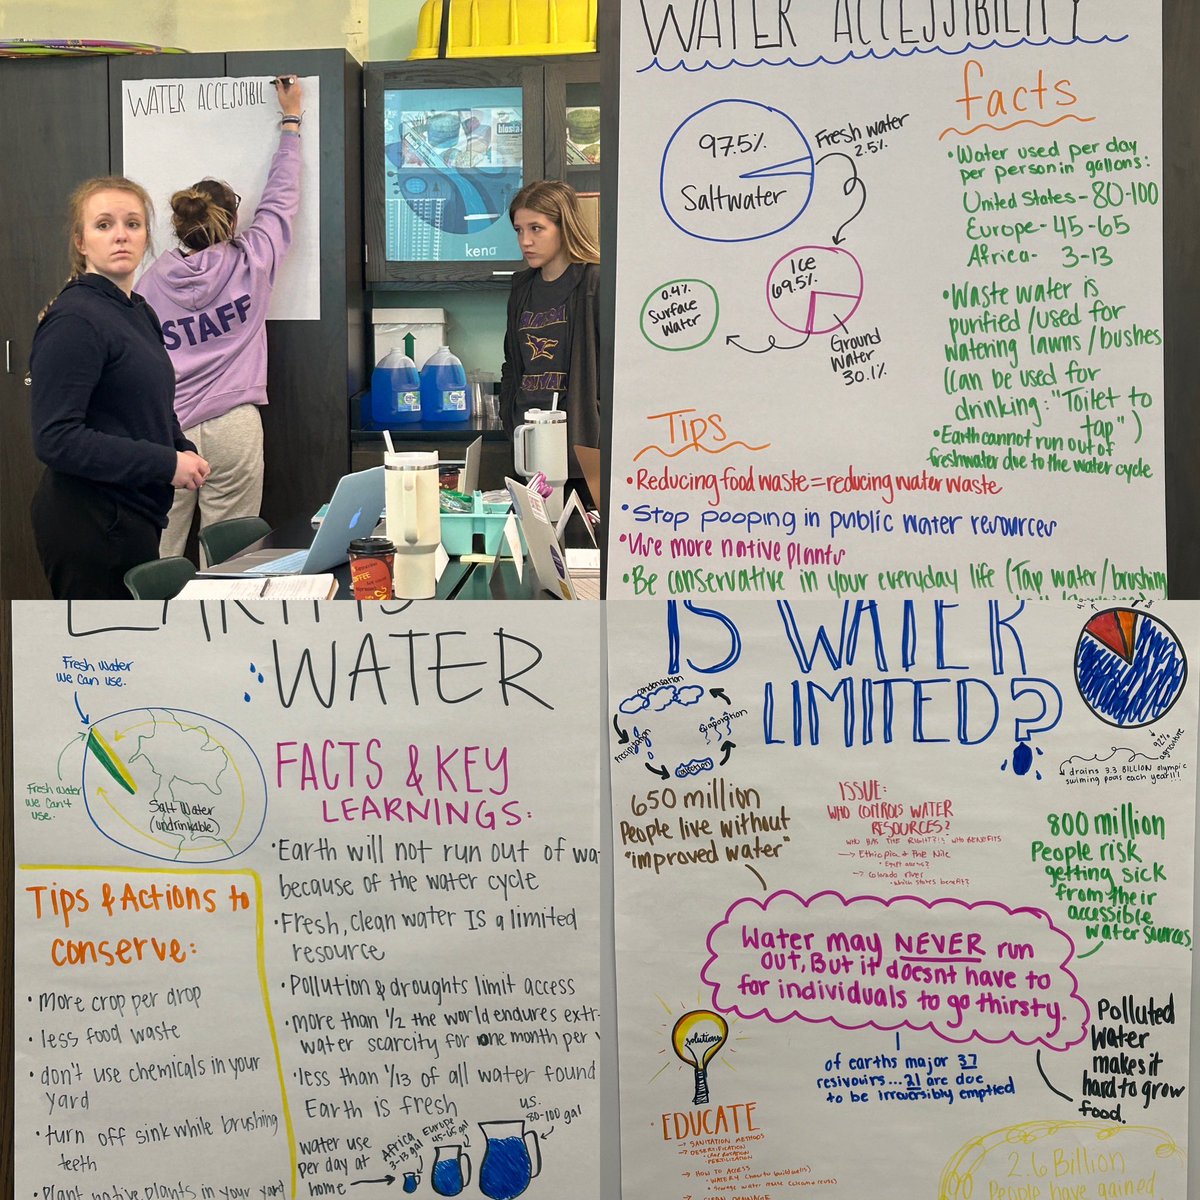 WATER ACCESSIBIL
STAFF
keno
WATER ACCESSIBILITY
97.5%
Saltwater
Fresh water
2.5%
Ice
69.5%
0.4%
Surface
Water
Ground
Water
30.1%
facts
•Water used per day
per person in gallons:
United States - 80-100
Europe - 45-65
Africa - 3-13
•Waste water is
purified/used for
watering lawns/bushes
(can be used for
drinking: "Toilet to
tap")
•Earth cannot run out of
freshwater due to the water cycle
Tips
•Reducing food waste = reducing water waste
•Stop pooping in public water resources
•Use more native plants
•Be conservative in your everyday life (Tap water/brushing
EARTH'S
WATER
Fresh water
we can use.
Fresh water
we can't
use.
Salt Water
(undrinkable)
FACTS & KEY
LEARNINGS:
•Earth will not run out of wa
because of the water cycle
•Fresh, clean water IS a limited
resource
•Pollution & droughts limit access
•more than 1/2 the world endures extr
water scarcity for one month per
•less than 1/13 of all water found
Earth is fresh
water use
per day at
home
Africa
3-13 gal
Europe
45-65 gal
U.S.
80-100 gal
Tips & Actions to
conserve:
•more crop per drop
•less food waste
•don't use chemicals in your
yard
•turn off sink while brushing
teeth
•Plant native plants in your yard
IS WATER
LIMITED?
condensation
evaporation
precipitation
collection
92%
agriculture
↓ drains 3.3 BILLION olympic
swiming pools each year!!!
650 million
People live without
"improved water"
ISSUE:
WHO CONTROLS WATER
RESOURCES?
WHO HAS THE RIGHT? WHO BENEFITS
→ Ethiopia & the Nile
• Egypt access?
→ Colorado River
• which states benefit?
800 million
People risk
getting sick
from their
accessible
water sources.
Water may NEVER run
out, But it doesnt have to
for individuals to go thirsty.
solutions
of earths major 37
resivours... 21 are due
to be irreversibly emptied
Polluted
Water
makes it
hard to grow
food.
•EDUCATE
→ SANITATION METHODS
→ DESERTIFICATION
• CROP ROTATION
→ HOW TO ACCESS
2.6 Billion
People have gained